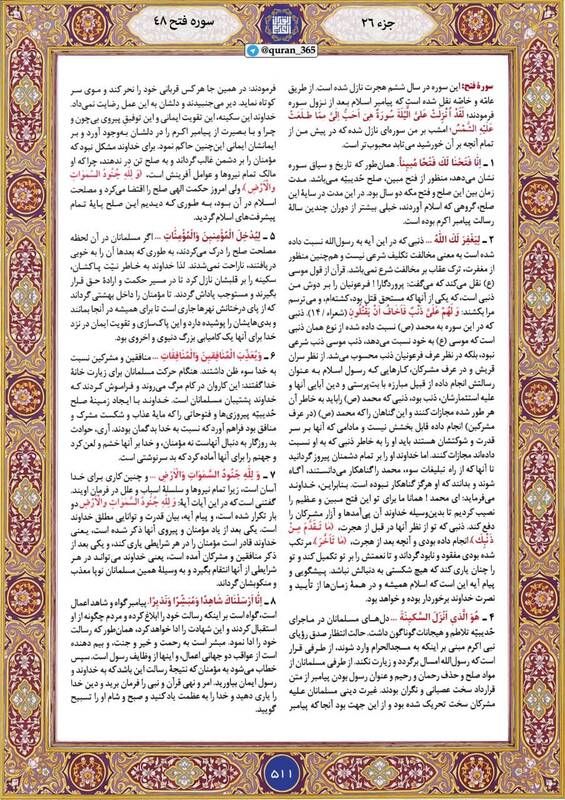 جزء ۲۶
سوره فتح ۴۸
@quran_365
سورهٔ فتح: این سوره در سال ششم هجرت نازل شده است. از طریق
عامّه و خاصّه نقل شده است که پیامبر اسلام بعد از نزول سوره
فرمودند: لَقَدْ أُنْزِلَتْ عَلَیَّ اللَّیْلَةَ سُورَةٌ هِیَ أَحَبُّ إِلَیَّ مِمَّا طَلَعَتْ
عَلَیْهِ الشَّمْسُ؛ امشب بر من سوره‌ای نازل شده که در پیش من از
تمام آنچه بر آن خورشید می‌تابد محبوب‌تر است.
۱ ـ إِنَّا فَتَحْنَا لَکَ فَتْحًا مُبِینًا. همان‌طور که تاریخ و سیاق سوره
نشان می‌دهد، منظور از فتح مبین، صلح حُدیبیّه می‌باشد. مدت
زمان بین این صلح و فتح مکه دو سال بود. در این مدت در سایهٔ این
صلح، گروهی که اسلام آوردند، خیلی بیشتر از دوران چندین سالهٔ
رسالت پیامبر اکرم بوده است.
۲ ـ لِیَغْفِرَ لَکَ اللَّهُ ... ذنبی که در این آیه به رسول‌الله نسبت داده
شده است به معنی مخالفت تکلیف شرعی نیست و هم‌چنین منظور
از مغفرت، ترک عقاب بر مخالفت شرع نمی‌باشد. قرآن از قول موسی
(ع) نقل می‌کند که می‌گفت: پروردگارا! فرعونیان را بر دوش من
ذنبی است، که یکی از آنها که مستحق قتل بود، کشته‌ام، و می‌ترسم
مرا بکشند: وَ لَهُمْ عَلَیَّ ذَنْبٌ فَأَخَافُ أَنْ یَقْتُلُونِ (شعراء / ۱۴). ذنبی
که در این سوره به محمد (ص) نسبت داده شده از نوع همان ذنبی
است که موسی (ع) به خود نسبت می‌دهد، ذنب موسی ذنب شرعی
نبود، بلکه در نظر عرف فرعونیان ذنب محسوب می‌شد. از نظر سران
قریش و در عرف مشرکان، کارهایی که رسول اسلام به عنوان
رسالتش انجام داده از قبیل مبارزه با بت‌پرستی و دین آبایی آنها و
علیه استثمارشان، ذنب بود، ذنبی که محمد (ص) را باید به خاطر آن
هر طور شده مجازات کنند و این گناهان را که محمد (ص) (در عرف
مشرکین) انجام داده قابل بخشش نیست و مادامی که آنها بر سر
قدرت و شوکتشان هستند باید او را به خاطر ذنبی که به او نسبت
داده‌اند مجازات کنند. اما خداوند او را بر تمام دشمنان پیروز گردانید
تا آنها که از راه تبلیغات سوء، محمد را گناهکار می‌دانستند، آگاه
شوند و بدانند که او هرگز گناهکار نبوده است. بنابراین، خداوند
می‌فرماید: ای محمد! همانا ما برای تو این فتح مبین و عظیم را
نصیب کردیم تا بدین‌وسیله خداوند آن پی‌آمدها و آزار مشرکان را
دفع کند. ذنبی که تو از نظر آنها در قبل از هجرت، (مَا تَقَدَّمَ مِنْ
ذَنْبِکَ)، انجام داده بودی و آنچه بعد از هجرت، (مَا تَأَخَّرَ) مرتکب
شده بودی مفقود و نابود گرداند و تا نعمتش را بر تو تکمیل کند و تو
را چنان یاری کند که هیچ شکستی به دنبالش نباشد. پیشگویی و
پیام آیه این است که اسلام همیشه و در همهٔ زمان‌ها از تأیید و
نصرت خداوند برخوردار بوده و خواهد بود.
۴ ـ هُوَ الَّذِی أَنْزَلَ السَّکِینَةَ ... دل‌های مسلمانان در ماجرای
حُدیبیّه پرتلاطم و هیجانات گوناگون داشت. حالت انتظار صدق رؤیای
نبی اکرم مبنی بر اینکه به مسجدالحرام وارد شوند، از طرفی قرار
است که رسول‌الله امسال برگردد و زیارت نکند. از طرفی مسلمانان از
مواد صلح و حذف رحمان و رحیم و عنوان رسول بودن پیامبر از متن
قرارداد سخت عصبانی و نگران بودند. غیرت دینی مسلمانان علیه
مشرکان سخت تحریک شده بود و از این جهت بود آنجا که پیامبر
فرمودند: در همین جا هر کس قربانی خود را نحر کند و موی سر
کوتاه نماید. دیر می‌جنبیدند و دلشان به این عمل رضایت نمی‌داد.
خداوند این سکینه، این تقویت ایمانی و این توفیق پیروی بی‌چون و
چرا و با بصیرت از پیامبر اکرم را در دلشان به‌وجود آورد و بر
ایمانشان ایمانی این‌چنین حاکم نمود. برای خداوند مشکل نبود که
مؤمنان را بر دشمن غالب گرداند و به صلح تن در ندهند، چرا که او
مالک تمام نیروها و عوامل آفرینش است، (وَ لِلَّهِ جُنُودُ السَّمَوَاتِ
وَالْأَرْضِ)، ولی امروز حکمت الهی صلح را اقتضا می‌کرد و مصلحت
اسلام در آن بود، به طوری که دیدیم این صلح پایهٔ تمام
پیشرفت‌های اسلام گردید.
۵ ـ لِیُدْخِلَ الْمُؤْمِنِینَ وَالْمُؤْمِنَاتِ ... اگر مسلمانان در آن لحظه
مصلحت صلح را درک می‌کردند، به طوری که بعدها آن را به خوبی
دریافتند، ناراحت نمی‌شدند. لذا خداوند به خاطر نیّت پاکشان،
سکینه را بر قلبشان نازل کرد تا در مسیر حکمت و ارادهٔ حق قرار
بگیرند و مستوجب پاداش گردند. تا مؤمنان را داخل بهشتی گرداند
که از پای درختانش نهرها جاری است تا برای همیشه در آنجا بمانند
و بدی‌هایشان را پوشیده دارد و این پاک‌سازی و تقویت ایمان در نزد
خدا برای آنها یک کامیابی بزرگ دنیوی و اخروی بود.
۶ ـ وَیُعَذِّبَ الْمُنَافِقِینَ وَالْمُنَافِقَاتِ ... منافقین و مشرکین نسبت
به خدا سوء ظن داشتند. هنگام حرکت مسلمانان برای زیارت خانهٔ
خدا گفتند: این کاروان در کام مرگ می‌روند و فراموش کردند که
خداوند پشتیبان مسلمانان است. خداوند با ایجاد زمینهٔ صلح
حُدیبیّه پیروزی‌ها و فتوحاتی را که مایهٔ عذاب و شکست مشرک و
منافق بود فراهم آورد که نسبت به خدا بدگمان بودند. آری، حوادث
بد روزگار به دنبال آنهاست نه مؤمنان، و خدا بر آنها خشم و لعن کرد
و جهنم را برای آنها آماده کرد که بد سرنوشتی است.
۷ ـ وَ لِلَّهِ جُنُودُ السَّمَوَاتِ وَالْأَرْضِ ... و چنین کاری برای خدا
آسان است، زیرا تمام نیروها و سلسلهٔ اسباب و علل در فرمان اویند.
گفتنی است که در این آیات آیهٔ: وَ لِلَّهِ جُنُودُ السَّمَوَاتِ وَالْأَرْضِ دو
بار تکرار شده است، و پیام آیه، بیان قدرت و توانایی مطلق خداوند
است. یکی بعد از یاد مؤمنان و پیروزی آنها ذکر شده است، یعنی
خداوند قادر است مؤمنان را در هر شرایطی یاری کند، و یکی بعد از
ذکر منافقین و مشرکان آمده است، یعنی خداوند می‌تواند در هر
شرایطی از آنها انتقام بگیرد و به وسیلهٔ همین مسلمانان نوپا معذب
و منکوبشان گرداند.
۸ ـ إِنَّا أَرْسَلْنَاکَ شَاهِدًا وَمُبَشِّرًا وَنَذِیرًا. پیامبر گواه و شاهد اعمال
است، گواه است بر اینکه رسالت خود را ابلاغ کرده و مردم چگونه از او
استقبال کردند و این شهادت را ادا خواهد کرد، همان‌طور که رسالت
خود را ادا نمود. مبشر است به رحمت و خیر و جنت، و بیم دهنده
است از عواقب دو جهانی اعمال، و اینها از وظایف رسول است. سپس
خطاب می‌شود به مؤمنان که نتیجهٔ رسالت این باشد که به خداوند و
رسول ایمان بیاورید. امر و نهی قرآن و نبی را فرمان برید و دین خدا
را یاری دهید و خدا را به عظمت یاد کنید و صبح و شام او را تسبیح
گویید.
۵۱۱